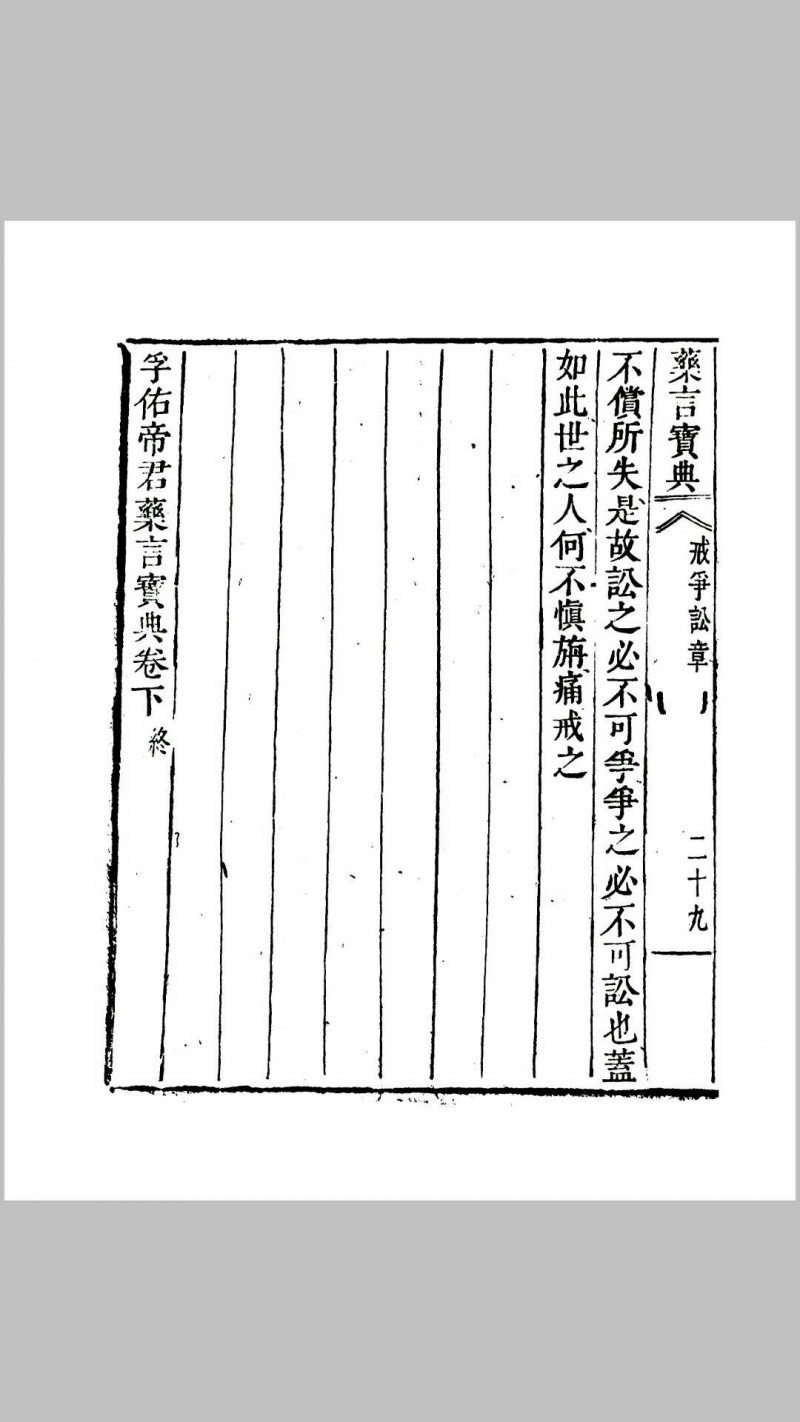 藥言寶典 戒爭訟章 二十九
不償所失是故訟之必不可爭爭之必不可訟也蓋
如此世之人何不慎旃痛戒之
孚佑帝君藥言寶典卷下 終